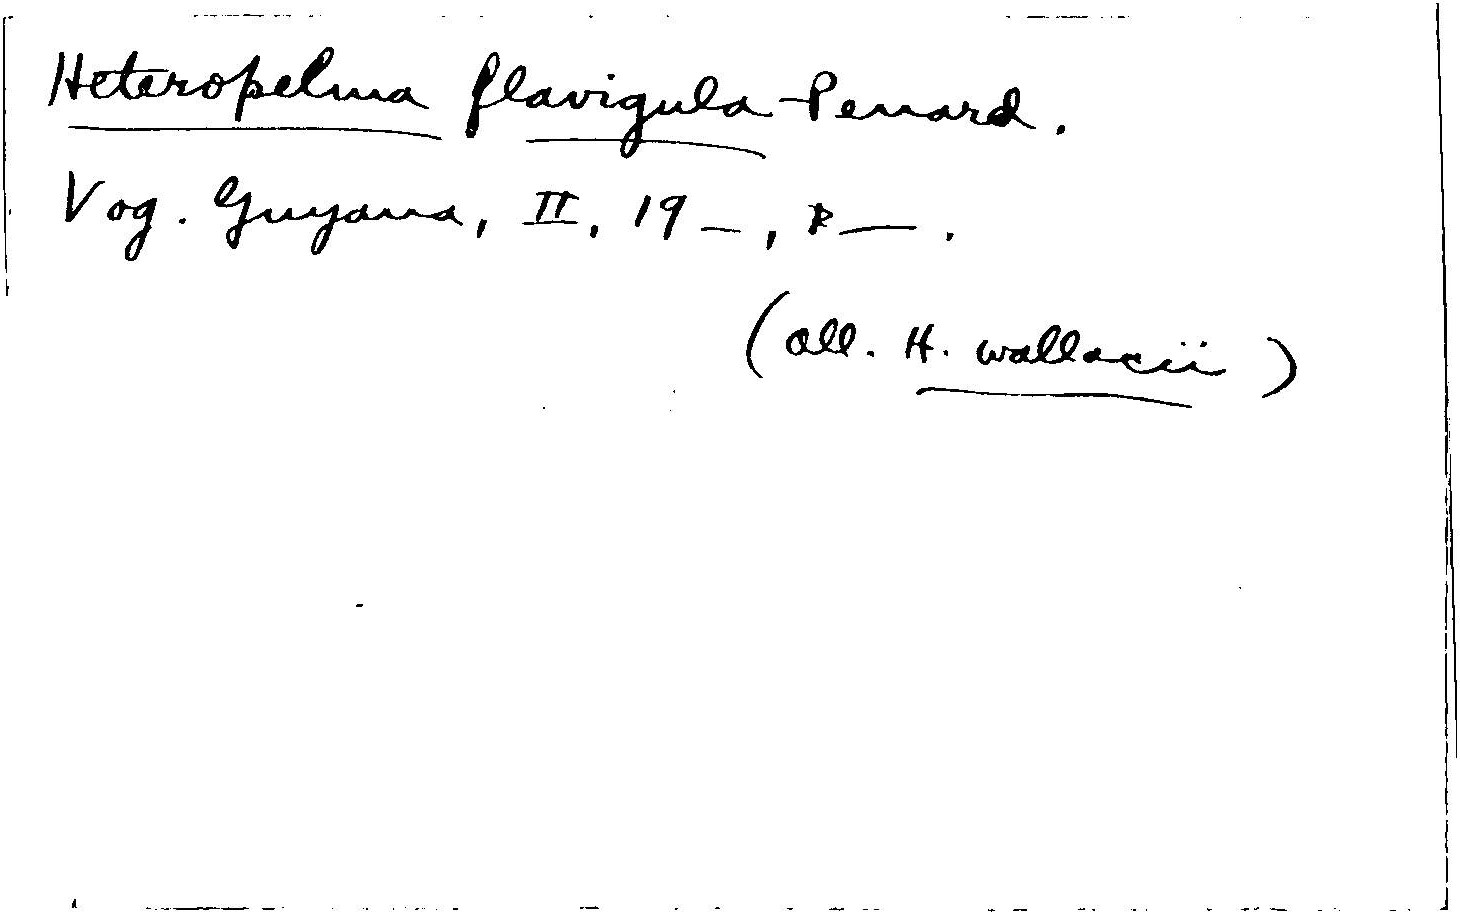 Heteropelma flavigula Penard.
Vog. Guyana, II, 19 —, p — .
(all. H. wallacii)